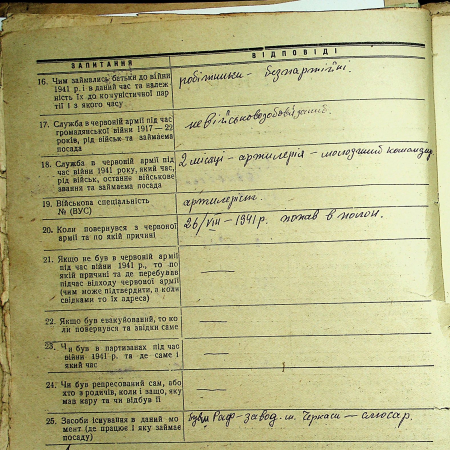 ЗАПИТАННЯ ВІДПОВІДІ
16. Чим займались батьки до війни
1941 р. і в даний час та належ-
ність їх до комуністичної пар-
тії і з якого часу
робітники - безпартійні.
17. Служба в червоній армії під час
громадянської війни 1917—22
років, рід військ та займаема
посада
невійськовозобов'язаний.
18. Служба в червоній армії під
час війни 1941 року, який час,
рід військ, останнє військове
звання та займаема посада
2 місяці - артилерія - молодший командир
19. Військова спеціальність
№ (ВУС)
артилерист.
20. Коли повернувся з червоної
армії та по якій причині
26/VIII — 1941 р. попав в полон.
21. Якщо не був в червоній армії
під час війни 1941 р., то по
якій причині та де перебував
підчас відходу червоної армії
(чим може підтвердити, а коли
свідками то їх адреса)
—
—
22. Якщо був евакуйований, то ко-
ли повернувся та звідки саме
—
23. Чи був в партизанах під час
війни 1941 р. та де саме і
який час
—
24. Чи був репресований сам, або
хто з родичів, коли і защо, яку
мав кару та чи відбув її
—
25. Засоби існування в даний мо-
мент (де працює і яку займає
посаду)
Раф-завод. м. Черкаси — слюсар.